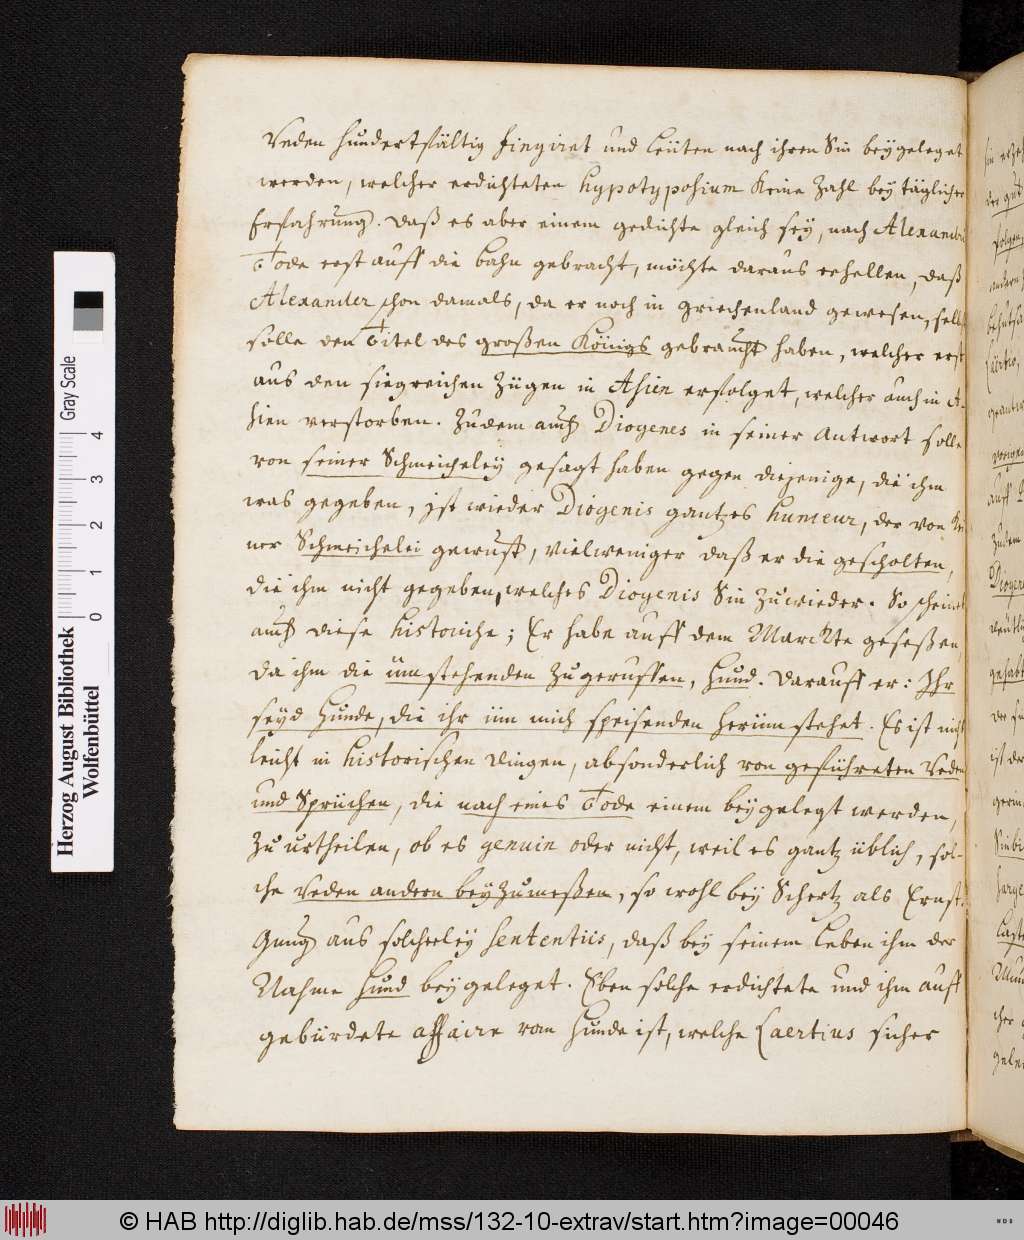 Reden hundertfältig fingiret und Leüten nach ihren Sin beygeleget
werden, welcher erdichteten hypotyposium keine Zahl bey täglicher
Erfahrung. Daß es aber einem gedichte gleich sey, nach Alexandri
Tode erst auff die bahn gebracht, möchte daraus erhellen, daß
Alexander schon damals, da er noch in Griechenland gewesen, selbst
solle den Titel des großen Königs gebraucht haben, welcher erst
aus den siegreichen Zügen in Asien erfolget, welcher auch in A-
sien verstorben. Zudem auch Diogenes in seiner Antwort solle
von seiner Schmeicheley gesagt haben gegen diejenige, die ihm
was gegeben, ist wieder Diogenis gantzes humeur, der von kei
ner Schmeichelei gewust, vielweniger daß er die gescholten,
die ihm nicht gegeben, welches Diogenis Sin zuwieder. So scheinet
auch diese historiche; Er habe auff dem Marckte geseßen,
da ihm die ümstehenden zugeruffen, Hund. Darauff er: Ihr
seyd Hunde, die ihr üm mich speisenden herüm stehet. Es ist nicht
leicht in historischen dingen, absonderlich von geführeten Reden
und Sprüchen, die nach eines Tode einem beygelegt werden,
zu urtheilen, ob es genuin oder nicht, weil es gantz üblich, sol-
che Reden andern beyzumeßen, so wohl bey Schertz als Ernst.
Gnug aus solcherley sententiis, daß bey seinem Leben ihm der
Nahme Hund beygeleget. Eben solche erdichtete und ihm auff
gebürdete affaire vom Hunde ist, welche Laertius sicher
der gute
folgen,
andern
Laërtio,
auff
Zudem
Diogen
ist der
Herzog August Bibliothek
Wolfenbüttel
Gray Scale
0 1 2 3 4
© HAB http://diglib.hab.de/mss/132-10-extrav/start.htm?image=00046